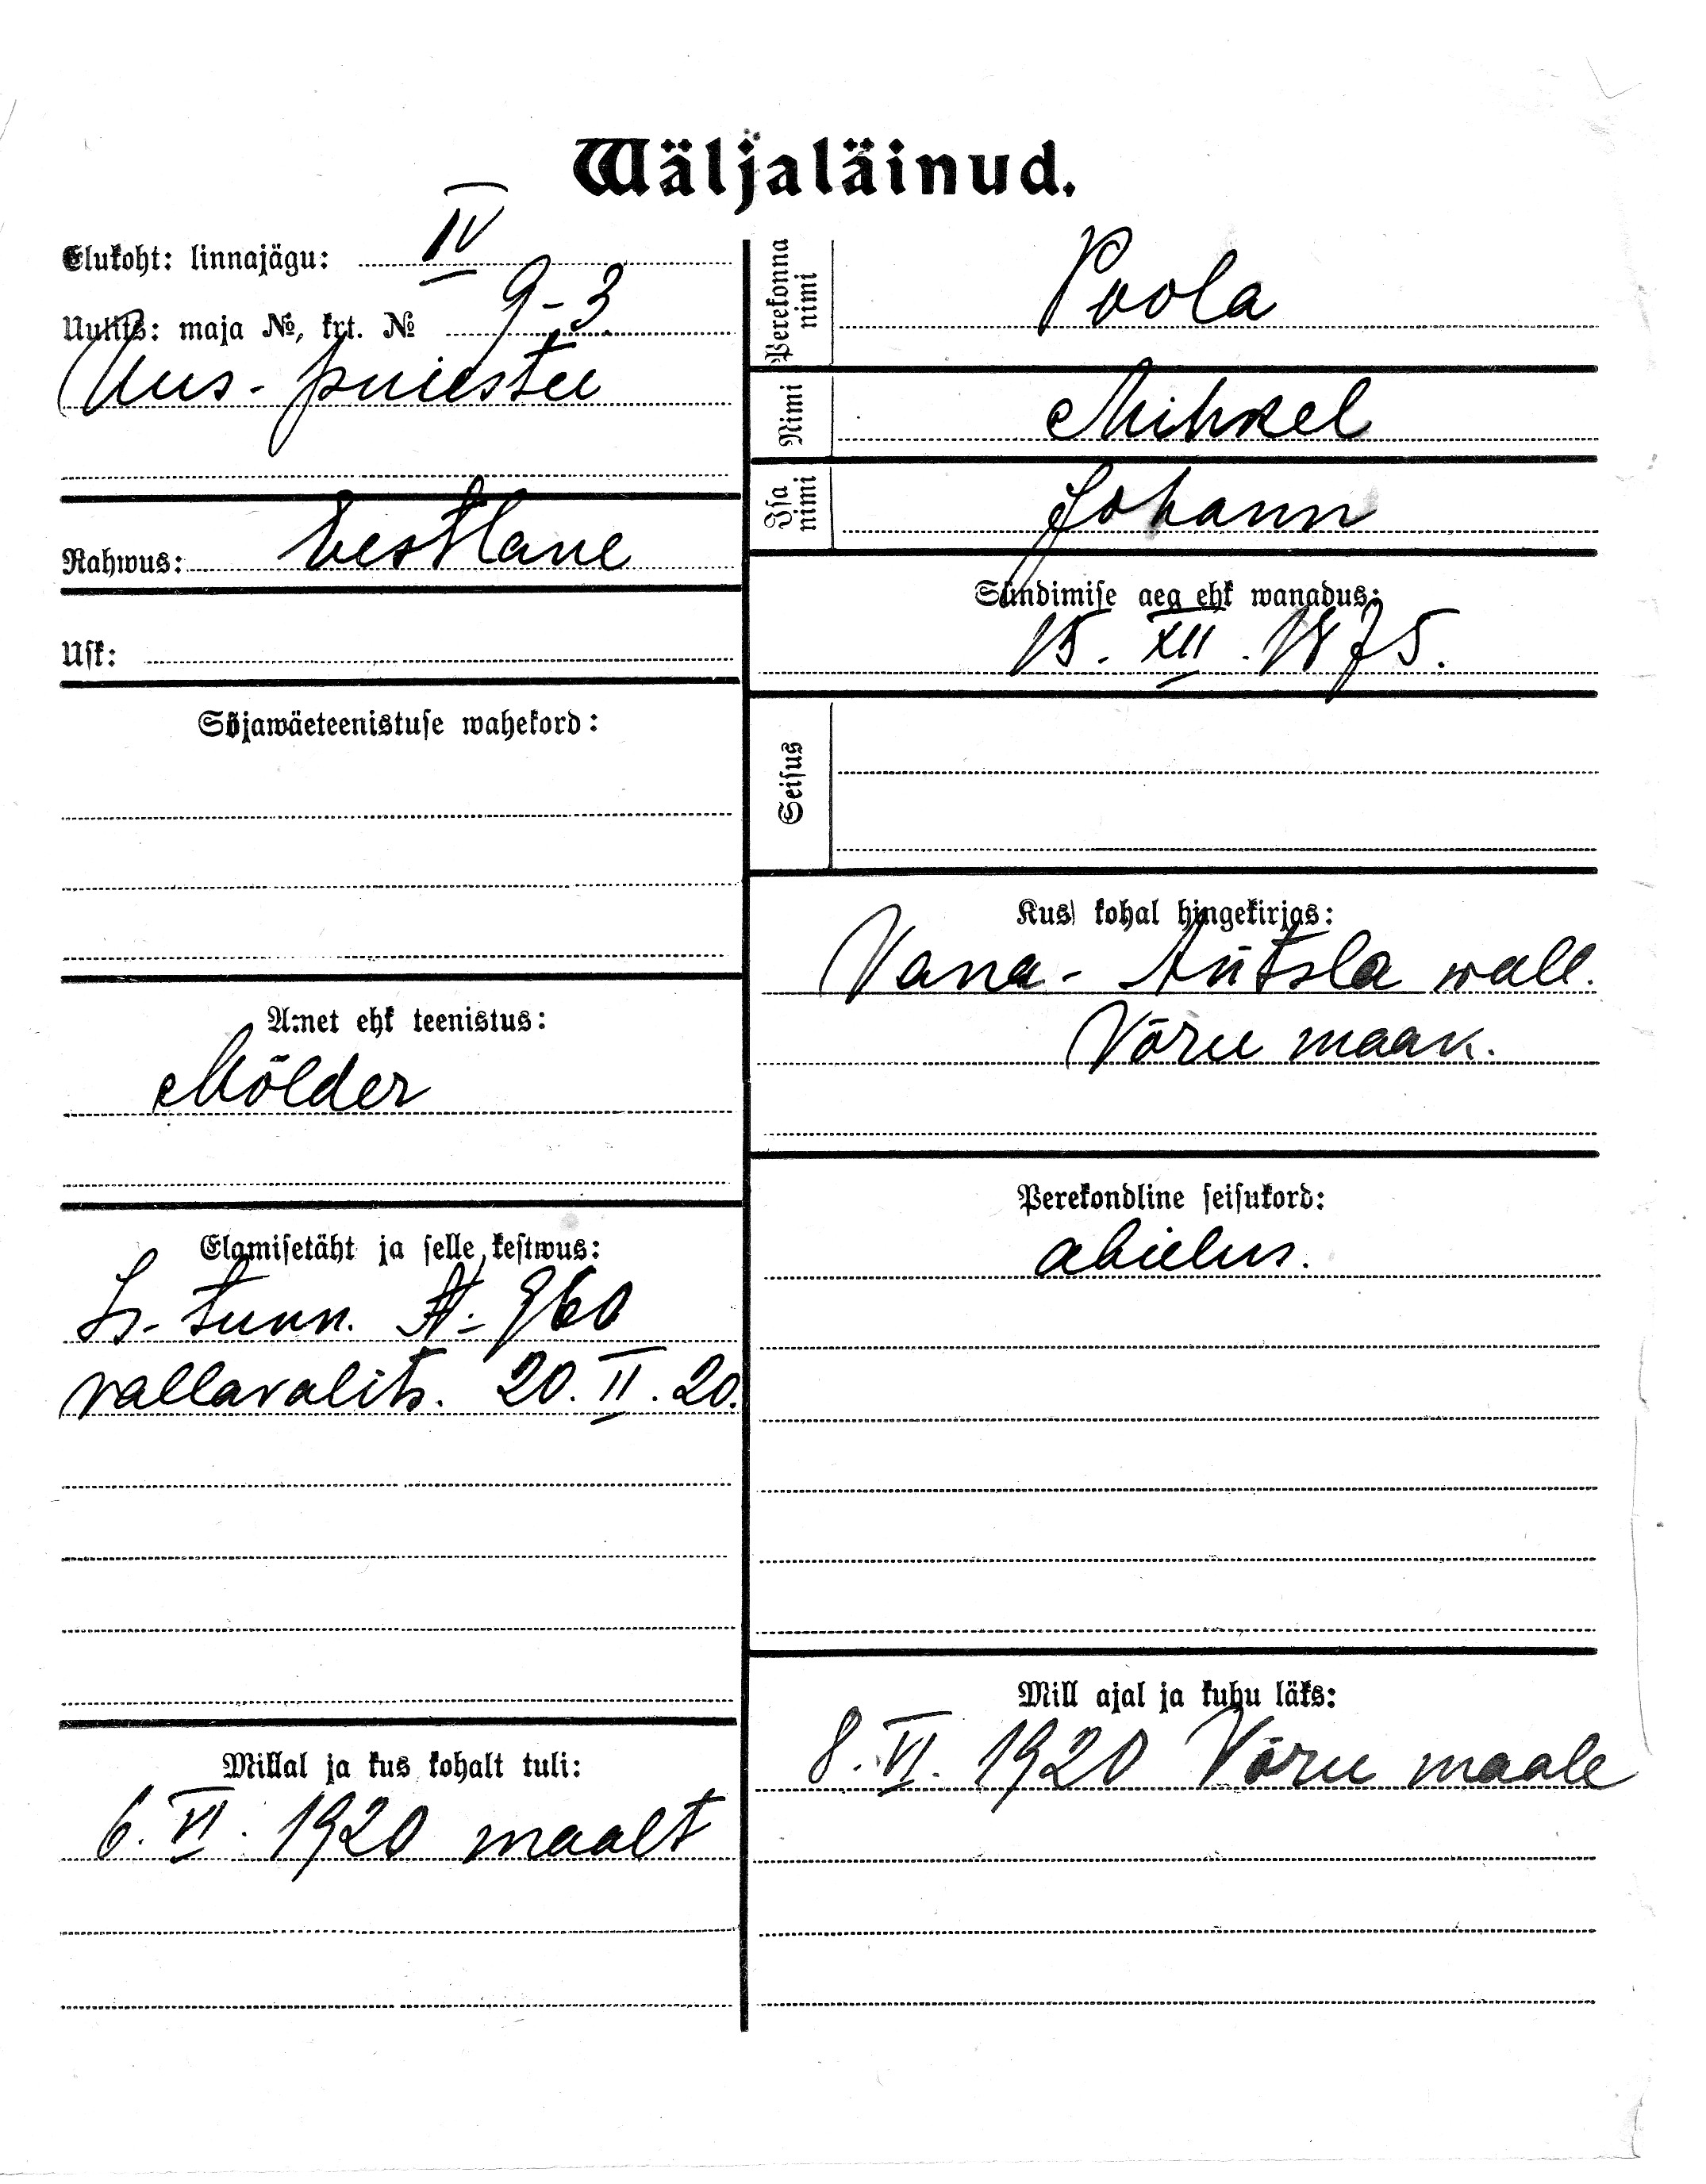 Wäljaläinud.
Elukoht: linnajägu: IV
Uulits: maja №, krt. № 9-3
Uus-puiestee
Rahwus: eestlane
Usk:
Sõjawäeteenistuse wahekord:
Amet ehk teenistus:
Mölder
Elamisetäht ja selle kestwus:
Is-tunn. A- 960
vallavalits. 20. II. 20.
Millal ja kus kohalt tuli:
6. VI. 1920 maalt
Perekonna nimi
Poola
Nimi
Mihkel
Isa nimi
Johann
Sündimise aeg ehk wanadus:
15. XII. 1875.
Seisus
Kus kohal hingekirjas:
Vana-Antsla wall.
Võru maak.
Perekondline seisukord:
abielus.
Mill ajal ja kuhu läks:
8. VI. 1920 Võru maale